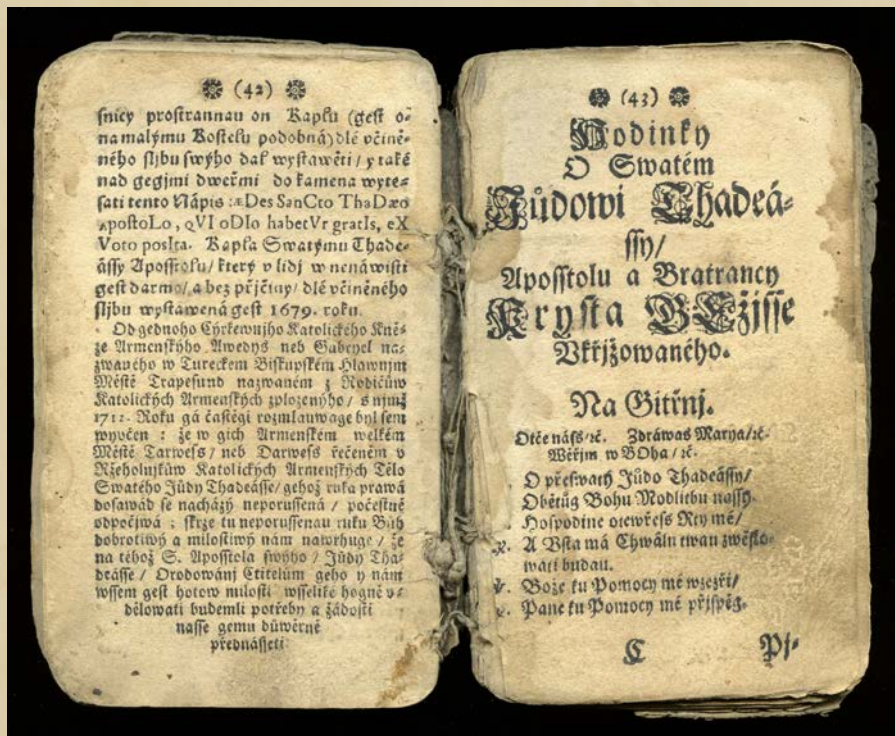 (42)
snicy prostrannau on Kaplu (gest o-
na malýmu Kostelu podobná) dlé včině-
ného sljbu swýho dal wystawěti / y také
nad gegjmi dweřmi do kamena wyte-
sati tento Nápis : æDes SanCto ThaDæo
ApostoLo , QVI oDIo habetVr gratIs, eX
Voto posIta. Kapla Swatýmu Thade-
ássy Aposstolu / který v lidj w nenáwisti
gest darmo / a bez přjčiny / dlé včiněného
sljbu wystawená gest 1679. roku.
Od gednoho Cýrkewnjho Katolického Kně-
ze Armenského Awedys neb Gabryel na-
zwaného w Tureckem Biskupském Hlawnjm
Městě Trapesund nazwaném z Rodičůw
Katolických Armenských zplozenýho / s njmž
Roku gá častěgi rozmlauwage byl sem
wyvčen : že w gich Armenském welkém
Městě Tarwess / neb Darwess řečeném v
Ržeholnjkůw Katolických Armenských Tělo
Swatého Júdy Thadeásse / gehož ruka prawá
dosawád se nacházý neporussená / počestně
odpočjwá ; skrze tu neporussenau ruku Bůh
dobrotiwý a milostiwý nám nawrhuge / že
na téhož S. Aposstola swýho / Júdy Tha-
deásse / Orodowánj Ctitelům geho y nám
wssem gest hotow milosti wsseliké hogně v-
dělowati budemli potřeby a žádosti
nasse gemu důwěrně
přednásseti
(43)
Hodinky
O Swatém
Júdowi Thadeá-
ssy/
Aposstolu a Bratrancy
Krysta GEžisse
Vkřjžowaného.
Na Gitřnj.
Otče náss/ꝛc. Zdráwas Marya/ꝛc.
Wěřjm w BOha /ꝛc.
O přeswatý Júdo Thadeássy/
Obětůg Bohu Modlitbu nassy.
Hospodine otewřess Rty mé/
R. A Vsta má Chwálu twau zwěsto-
wati budau.
V. Bože ku Pomocy mé wzezři/
R. Pane ku Pomocy mé přispěg.
C Pj-